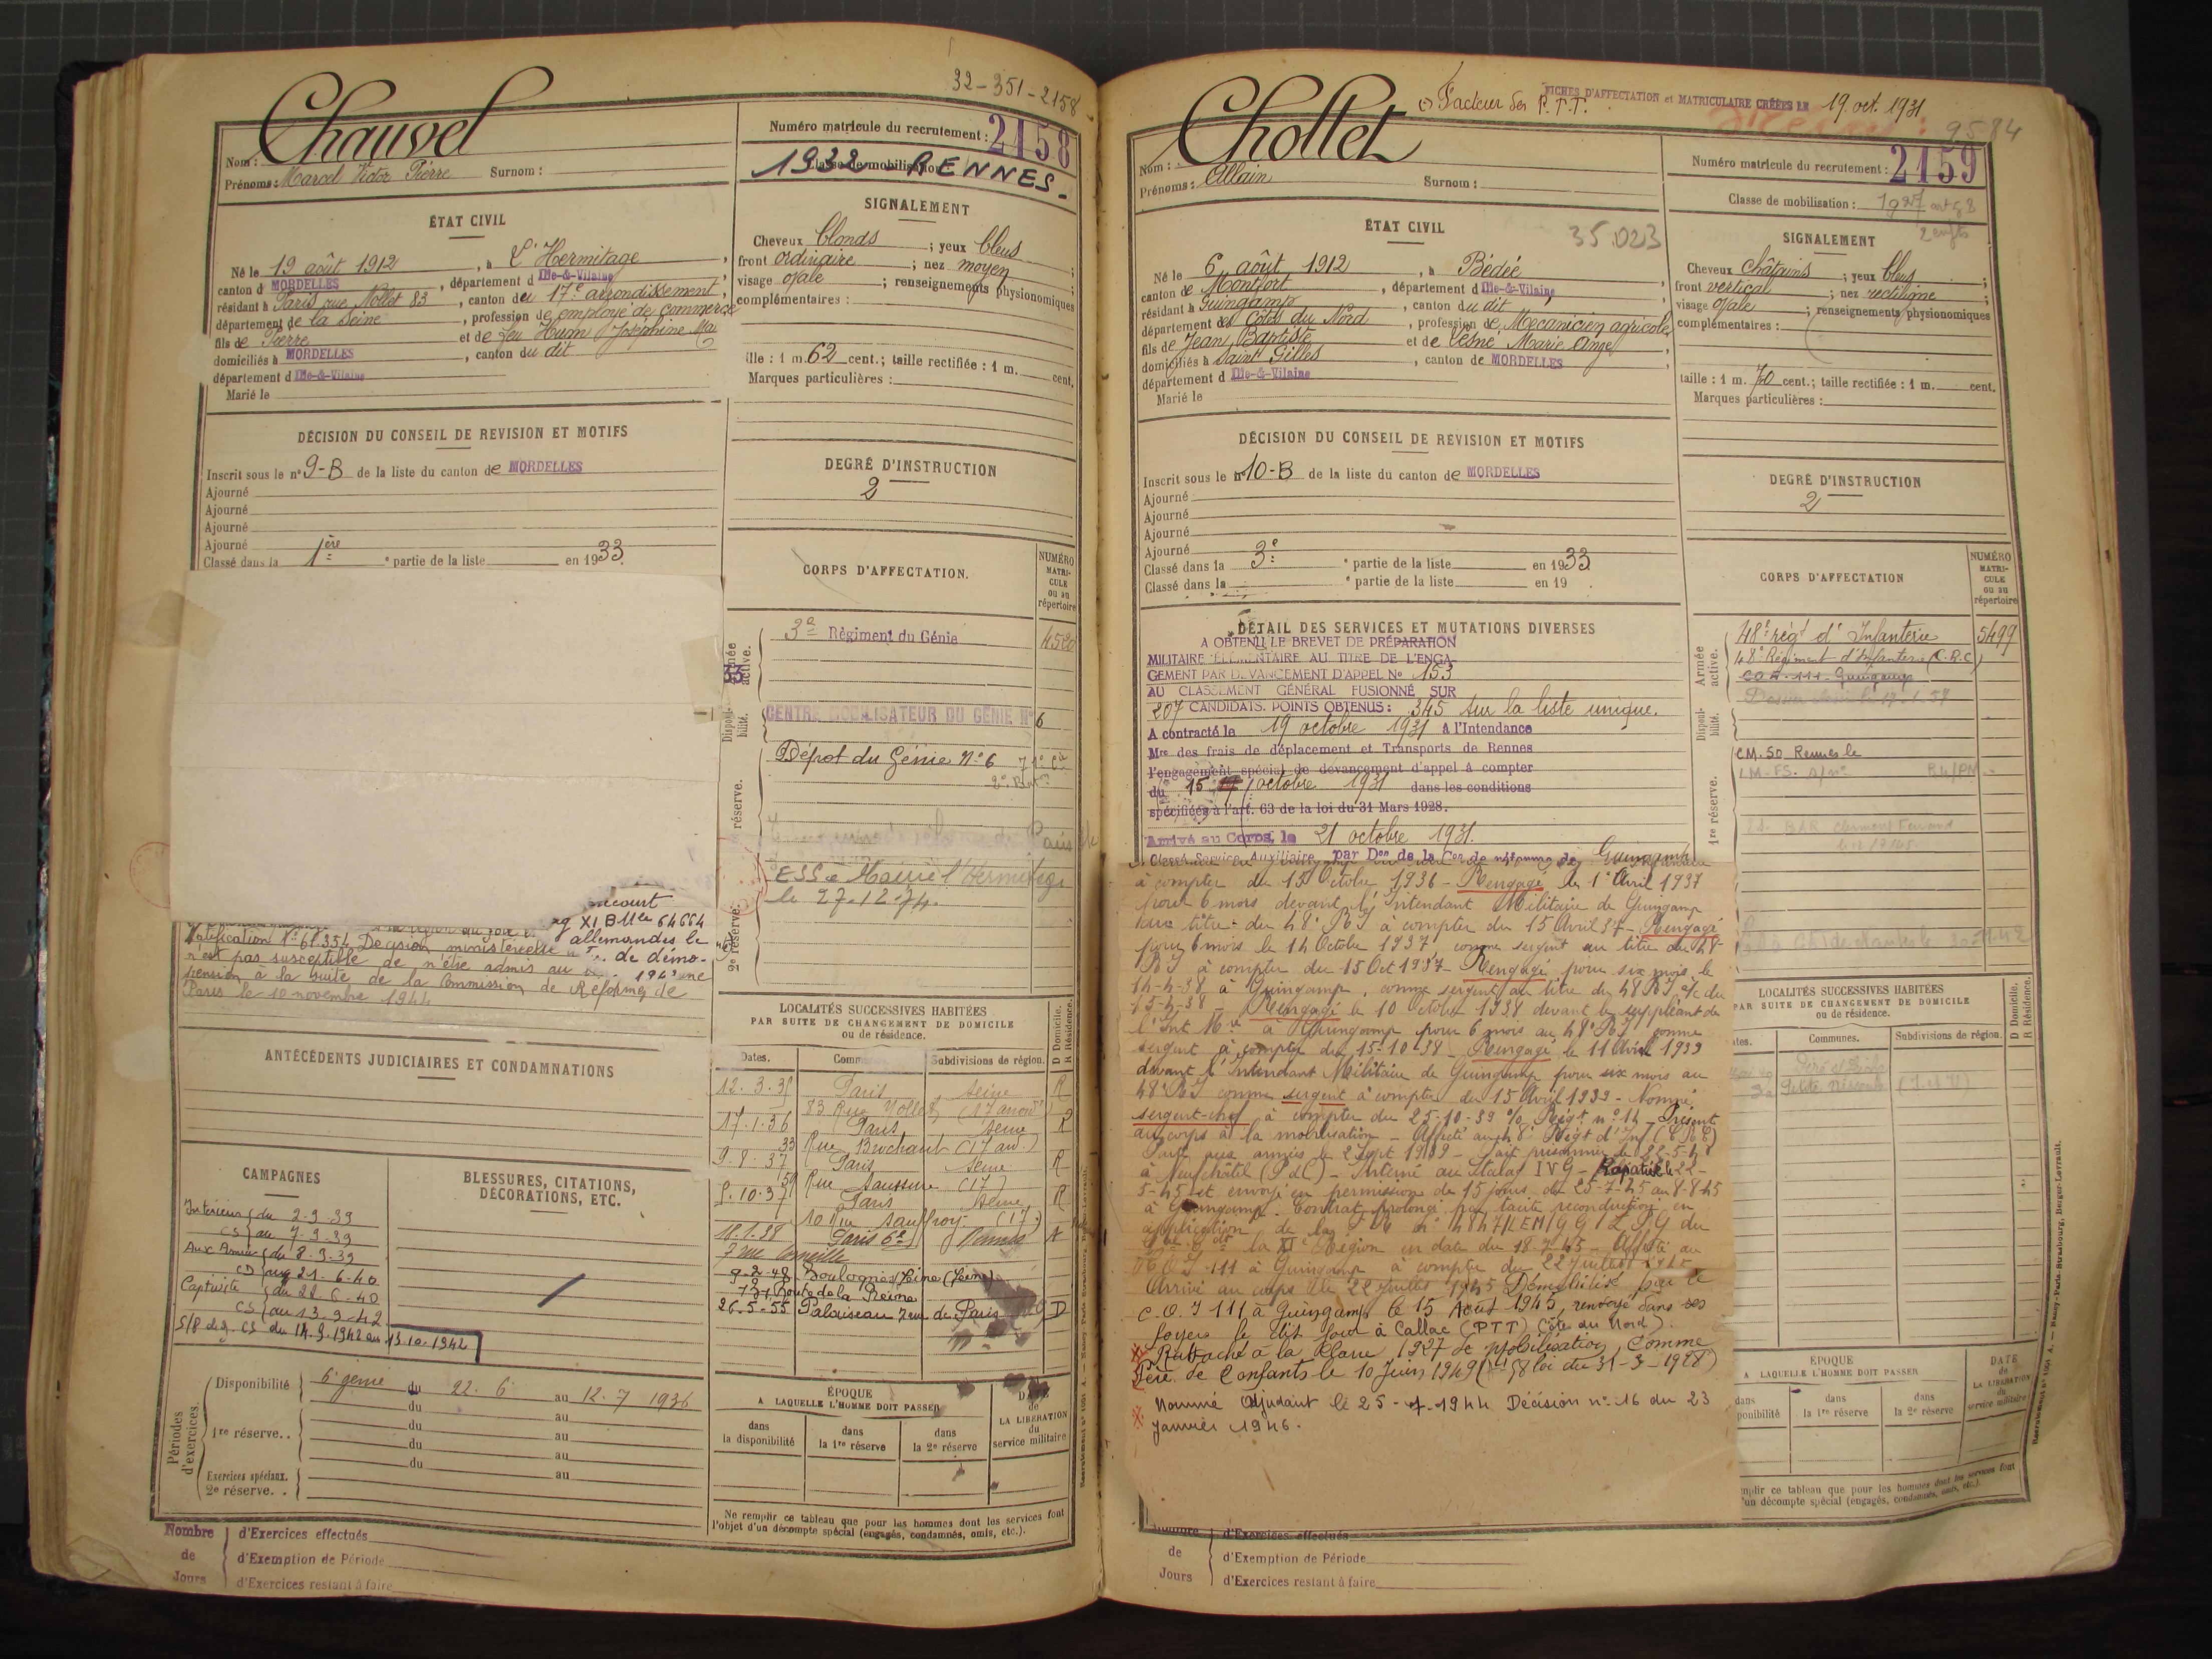 32-351-2158
Chauvel
Nom :
Prénoms : Marcel Victor Pierre Surnom :
Numéro matricule du recrutement : 2158
Classe de mobilisation
1932 - RENNES -
ÉTAT CIVIL
Né le 19 août 1912, à L'Hermitage,
canton d MORDELLES, département d Ille-&-Vilaine
résidant à Paris rue Nollet 83, canton du 17e arrondissement,
département de la Seine, profession de employé de commerce
fils de Pierre et de feu Hum Joséphine Ma
domiciliés à MORDELLES, canton du dit
département d Ille-&-Vilaine
Marié le
SIGNALEMENT
Cheveux blonds ; yeux bleus ;
front ordinaire ; nez moyen ;
visage ovale ; renseignements physionomiques
complémentaires :
ille : 1 m. 62 cent.; taille rectifiée : 1 m. cent.
Marques particulières :
DÉCISION DU CONSEIL DE REVISION ET MOTIFS
Inscrit sous le n° 9-B de la liste du canton de MORDELLES
Ajourné
Ajourné
Ajourné
Ajourné
Classé dans la 1ère partie de la liste en 1933.
DEGRÉ D'INSTRUCTION
2
CORPS D'AFFECTATION.
NUMÉRO MATRI-CULE ou au répertoire
Armée active.
33
3e Régiment du Génie 4520
Disponi-bilité.
CENTRE MOBILISATEUR DU GÉNIE N° 6
1re réserve.
Dépôt du Génie N° 6
ESS Mairie l'Hermitage
le 27.12.74.
2e réserve.
ncourt
ag XI B Mle 64664
allemandes le
Notification N° 61.354 Décision ministérielle
de démo-
n'est pas susceptible de n'être admis au
pension à la suite de la Commission de Réforme de
Paris le 10 novembre 1944
ANTÉCÉDENTS JUDICIAIRES ET CONDAMNATIONS
LOCALITÉS SUCCESSIVES HABITÉES
PAR SUITE DE CHANGEMENT DE DOMICILE
ou de résidence.
D Domicile.
R Résidence.
Dates. Subdivisions de région.
12.3.35 Paris Seine R
83 Rue Nollet (17 arrondt)
17.1.36 Paris Seine R
33 Rue Brochant (17 arr)
9.8.37 Paris Seine R
59 Rue Saussure (17)
8.10.37 Paris Seine R
10 Rue Sauffroy (17)
18.1.38 Paris 6e
7 rue Corneille
9-2-48 Boulogne s/Seine (Seine)
73, Route de la Reine
26-5-55 Palaiseau 7 rue de Paris D
CAMPAGNES
Intérieur du 2-9-39
CS au 7-9-39
Aux Armées du 8-9-39
CD au 21-6-40
Captivité du 22-6-40
CS au 13-9-42
S/P de g. CS du 14.9.1942 au 13.10.1942
BLESSURES, CITATIONS,
DÉCORATIONS, ETC.
Périodes d'exercices.
Disponibilité 6e génie du 22.6 au 12.7 1936
du au
1re réserve.. du au
du au
du au
Exercices spéciaux.
2e réserve. .
ÉPOQUE
A LAQUELLE L'HOMME DOIT PASSER
dans la disponibilité
dans la 1re réserve
dans la 2e réserve
DATE de LA LIBÉRATION du service militaire
Ne remplir ce tableau que pour les hommes dont les services font
l'objet d'un décompte spécial (engagés, condamnés, omis, etc.).
Nombre de Jours
d'Exercices effectués
d'Exemption de Période
d'Exercices restant à faire
Facteur des P.T.T.
FICHES D'AFFECTATION et MATRICULAIRE CRÉÉES LE 19. oct. 1931
9584
Chollet
Nom :
Prénoms : Allain Surnom :
Numéro matricule du recrutement : 2159
Classe de mobilisation : 1927 art 58
2 enfts
ÉTAT CIVIL
35.023
Né le 6 août 1912, à Bédée
canton de Montfort, département d Ille-&-Vilaine,
résidant à Guingamp, canton du dit,
département des Côtes du Nord, profession de Mécanicien agricole,
fils de Jean Baptiste et de Lesné Marie Ange,
domiciliés à Saint Gilles, canton de MORDELLES,
département d Ille-&-Vilaine
Marié le
SIGNALEMENT
Cheveux châtains ; yeux bleus ;
front vertical ; nez rectiligne ;
visage ovale ; renseignements physionomiques
complémentaires :
taille : 1 m. 70 cent.; taille rectifiée : 1 m. cent.
Marques particulières :
DÉCISION DU CONSEIL DE REVISION ET MOTIFS
Inscrit sous le n° 10-B de la liste du canton de MORDELLES
Ajourné
Ajourné
Ajourné
Ajourné
Classé dans la 3e partie de la liste en 1933
Classé dans la partie de la liste en 19 .
DEGRÉ D'INSTRUCTION
2
DÉTAIL DES SERVICES ET MUTATIONS DIVERSES
A OBTENU LE BREVET DE PRÉPARATION
MILITAIRE ÉLÉMENTAIRE AU TITRE DE L'ENGA-
GEMENT PAR DEVANCEMENT D'APPEL N° 153
AU CLASSEMENT GÉNÉRAL FUSIONNÉ SUR
207 CANDIDATS. POINTS OBTENUS : 345 sur la liste unique.
A contracté le 19 octobre 1931 à l'Intendance
Mre des frais de déplacement et Transports de Rennes
l'engagement spécial de devancement d'appel à compter
du 15 octobre 1931 dans les conditions
spécifiées à l'art. 63 de la loi du 31 Mars 1928.
Arrivé au Corps, le 21 octobre 1931.
Classé Service Auxiliaire par Don de la Con de réforme de Guingamp
à compter du 15 Octobre 1936 - Rengagé le 1er Avril 1937
pour 6 mois devant l'Intendant Militaire de Guingamp
au titre du 48e RI à compter du 15 Avril 37 - Rengagé
pour 6 mois le 14 Octobre 1937 comme sergent au titre du 48e
RI à compter du 15 Oct 1937 - Rengagé pour six mois le
14-4-38 à Guingamp, comme sergent au titre du 48 RI à/c du
15-4-38 - Rengagé le 10 Octobre 1938 devant le suppléant de
l'Int Mre à Guingamp pour 6 mois au 48e RI comme
sergent à compter du 15-10-38 - Rengagé le 11 Avril 1939
devant l'Intendant Militaire de Guingamp pour six mois au
48e RI comme sergent à compter du 15 Avril 1939 - Nommé
sergent-chef à compter du 25-10-39 % Régt n° 14 - Présent
au corps à la mobilisation - Affecté au 48e Régt d'Inf (CRE)
Parti aux armées le 2 Sept 1939 - Fait prisonnier le 22-5-40
à Neufchâtel (P de C) - Interné au Stalag IV G - Rapatrié le 22-
5-45 et envoyé en permission de 15 jours du 25-7-45 au 8-8-45
à Guingamp. Contrat prolongé par tacite reconduction en
application de la
la XIe Région en date du 18-7-45 - Affecté au
C.O.I 111 à Guingamp à compter du 22 Juillet 1945
Arrivé au corps le 22 Juillet 1945 Démobilisé par le
C.O.I 111 à Guingamp le 15 Août 1945, renvoyé dans ses
foyers le dit jour à Callac (PTT) (Côte du Nord).
Rattaché à la classe 1927 de mobilisation, comme
Père de 2 enfants le 10 Juin 1949 (art 58 loi du 31-3-1928)
Nommé Adjudant le 25-7-1944 Décision n° 16 du 23
Janvier 1946.
CORPS D'AFFECTATION
NUMÉRO MATRI-CULE ou au répertoire
Armée active.
48e régt d'Infanterie 5499
48e Régiment d'Infanterie (C.R.C)
COA 111 Guingamp
Disponi-bilité.
CM.50 Rennes le
1re réserve.
LOCALITÉS SUCCESSIVES HABITÉES
PAR SUITE DE CHANGEMENT DE DOMICILE
ou de résidence.
D Domicile.
R Résidence.
tes. Communes. Subdivisions de région.
ÉPOQUE
A LAQUELLE L'HOMME DOIT PASSER
dans ponibilité
dans la 1re réserve
dans la 2e réserve
DATE de LA LIBÉRATION du service militaire
emplir ce tableau que pour les hommes dont les services font
'un décompte spécial (engagés, condamnés, omis, etc.).
Nombre de Jours
d'Exercices effectués
d'Exemption de Période
d'Exercices restant à faire